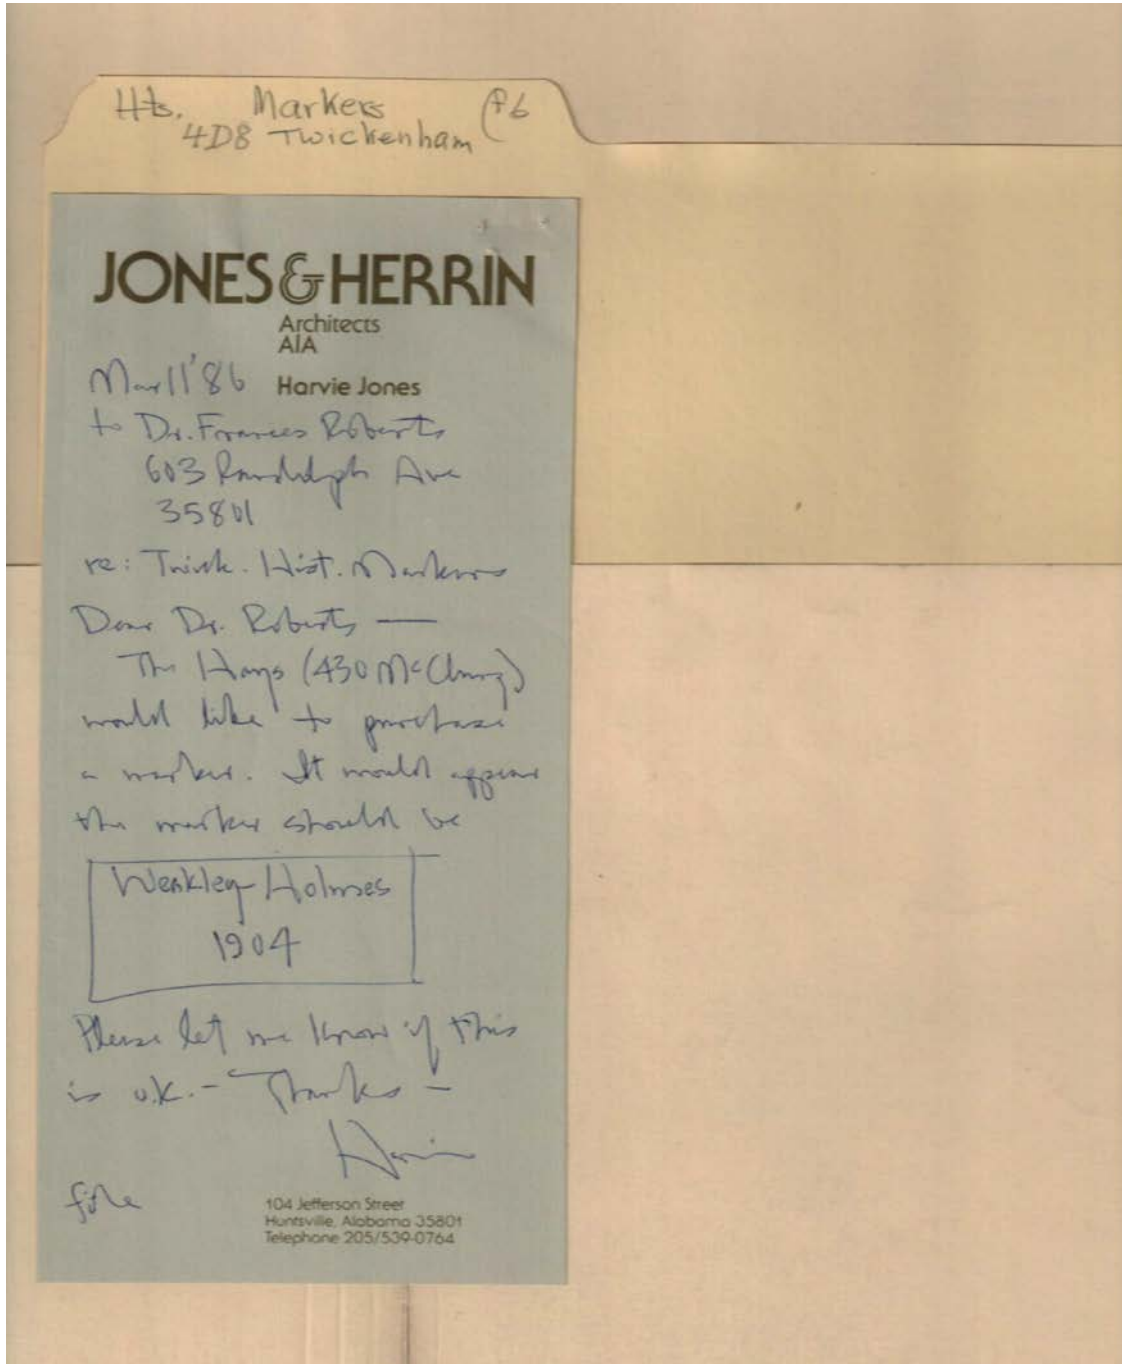 Hts. Markers (f6
4D8 Twickenham
JONES & HERRIN
Architects
AIA
Mar 11 '86 Harvie Jones
to Dr. Frances Roberts
603 Randolph Ave
35801
re: Twick. Hist. Markers
Dear Dr. Roberts —
The Hays (430 McClung)
would like to purchase
a marker. It would appear
the marker should be
Weakley-Holmes
1904
Please let me know if this
is o.k. - Thanks -
Harvie
file
104 Jefferson Street
Huntsville, Alabama 35801
Telephone 205/539-0764